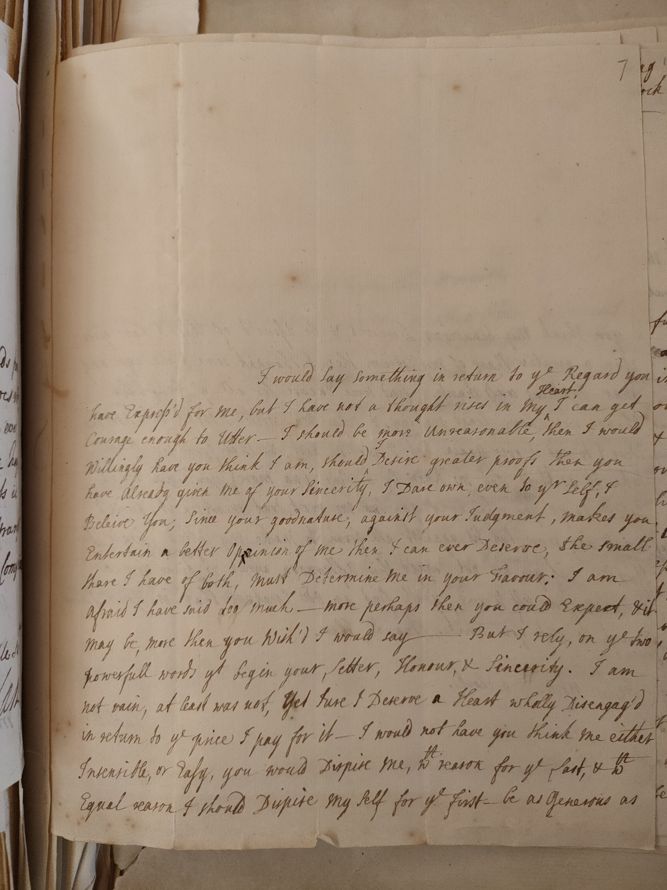 7
I would say something in return to yᵉ Regard you
have Express'd for me, but I have not a thought rises in my Heart I can get
Courage enough to Utter — I should be more Unreasonable, then I would
Willingly have you think I am, should I Desire greater proofs then you
have Already given me of your Sincerity, I Dare own even to yʳ Self, I
Beleive You; Since your goodnature, against your Judgment, makes you
Entertain a better Opinion of me then I can ever Deserve, the small
share I have of both, must Determine me in your Favour: I am
Afraid I have said too much — more perhaps then you could Expect, & it
may be, more then you Wish'd I would say — But I rely, on yᵉ two
powerfull words yt begin your Letter, Honour, & Sincerity. I am
not vain, at least was not, Yet sure I Deserve a Heart wholly Disengag'd
in return to yᵉ price I pay for it — I would not have you think me either
Insensible, or Easy, you would Dispise me, wᵗʰ reason for yᵉ last, & wᵗʰ
Equal reason I should Dispise my Self for yᵉ first — be as Generous as